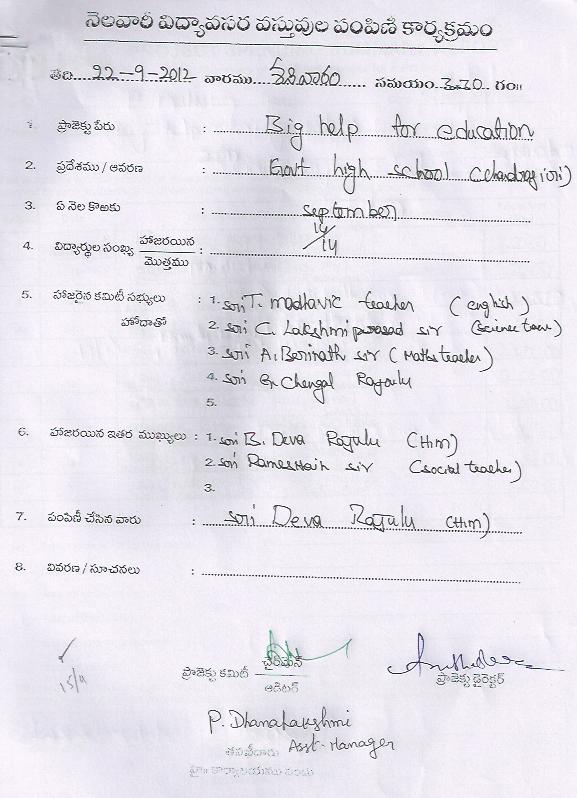 నెలవారీ విద్యావసర వస్తువుల పంపిణీ కార్యక్రమం
తేది 22-9-2012 వారము శనివారం సమయం 3.30 గం॥
1. ప్రాజెక్టు పేరు : Big help for education
2. ప్రదేశము / ఆవరణ : Govt high school (chandragiri)
3. ఏ నెల కొఱకు : September
4. విద్యార్థుల సంఖ్య హాజరయిన / మొత్తము : 14/14
5. హాజరైన కమిటీ సభ్యులు హోదాతో : 1. sori T. madhavic teacher (english)
2. sori C. Lakshmi prasad sir (science
3. sori A. Berinath sir (Maths teacher)
4. sori Chengal Rajulu
5.
6. హాజరయిన ఇతర ముఖ్యులు : 1. sori B. Deva Rajulu (HM)
2. sori sir (social teacher)
3.
7. పంపిణీ చేసిన వారు : sori Deva Rajulu (HM)
8. వివరణ / సూచనలు :
15/9
ప్రాజెక్టు కమిటీ చైర్‌మేన్ / ఆడిటర్
ప్రాజెక్టు డైరెక్టర్
P. Dhanalakshmi
Asst-Manager